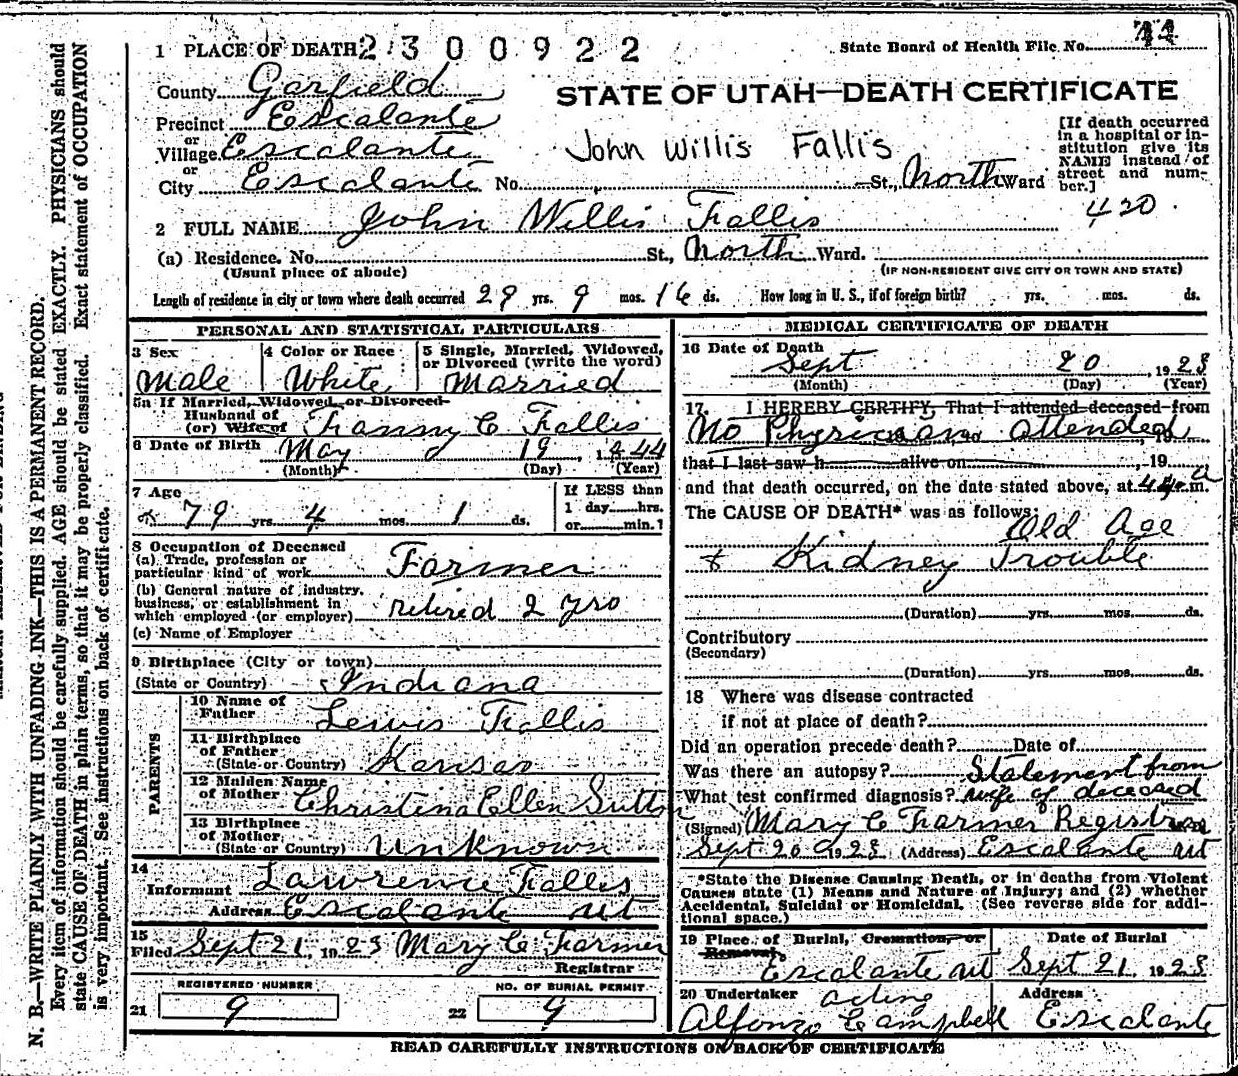 1 PLACE OF DEATH 2300922
State Board of Health File No.
County Garfield
STATE OF UTAH—DEATH CERTIFICATE
Precinct Escalante
or
Village Escalante
or
City Escalante No. St., North Ward
John Willis Fallis
[If death occurred
in a hospital or in-
stitution give its
NAME instead of
street and num-
ber.]
420.
2 FULL NAME John Willis Fallis
(a) Residence. No. St., North Ward.
(Usual place of abode)
(IF NON-RESIDENT GIVE CITY OR TOWN AND STATE)
Length of residence in city or town where death occurred 29 yrs. 9 mos. 16 ds. How long in U. S., if of foreign birth? yrs. mos. ds.
PERSONAL AND STATISTICAL PARTICULARS
3 Sex
Male
4 Color or Race
White
5 Single, Married, Widowed,
or Divorced (write the word)
Married
5a If Married, Widowed, or Divorced
Husband of
(or) Wife of Fanny C Fallis
6 Date of Birth May 19, 1844
(Month) (Day) (Year)
7 Age
79 yrs. 4 mos. 1 ds.
If LESS than
1 day hrs.
or min.?
8 Occupation of Deceased
(a) Trade, profession or
particular kind of work Farmer
(b) General nature of industry,
business, or establishment in
which employed (or employer) retired 2 yrs
(c) Name of Employer
9 Birthplace (City or town)
(State or Country) Indiana
PARENTS
10 Name of
Father Lewis Fallis
11 Birthplace
of Father
(State or Country) Kansas
12 Maiden Name
of Mother Christina Ellen Sutton
13 Birthplace
of Mother
(State or Country) Unknown
14
Informant Lawrence Fallis
Address Escalante Ut
15
Filed Sept 21, 1923 Mary C Farmer
Registrar
REGISTERED NUMBER
21 9
NO. OF BURIAL PERMIT
22 9
MEDICAL CERTIFICATE OF DEATH
16 Date of Death
Sept 20, 1923
(Month) (Day) (Year)
17. I HEREBY CERTIFY, That I attended deceased from
No Physician attended
that I last saw h alive on , 19
and that death occurred, on the date stated above, at a m.
The CAUSE OF DEATH* was as follows:
Old Age
& Kidney Trouble
(Duration) yrs. mos. ds.
Contributory
(Secondary)
(Duration) yrs. mos. ds.
18 Where was disease contracted
if not at place of death?
Did an operation precede death? Date of
Was there an autopsy? Statement from
What test confirmed diagnosis? wife of deceased
(Signed) Mary C Farmer Registrar
Sept 20 1923 (Address) Escalante Ut
*State the Disease Causing Death, or in deaths from Violent
Causes state (1) Means and Nature of Injury; and (2) whether
Accidental, Suicidal or Homicidal. (See reverse side for addi-
tional space.)
19 Place of Burial, Cremation, or
Removal,
Escalante Ut
Date of Burial
Sept 21 1923
20 Undertaker acting
Alfonzo Campbell
Address
Escalante
READ CAREFULLY INSTRUCTIONS ON BACK OF CERTIFICATE
N. B.—WRITE PLAINLY WITH UNFADING INK—THIS IS A PERMANENT RECORD.
Every item of information should be carefully supplied. AGE should be stated EXACTLY. PHYSICIANS should
state CAUSE OF DEATH in plain terms, so that it may be properly classified. Exact statement of OCCUPATION
is very important. See instructions on back of certificate.